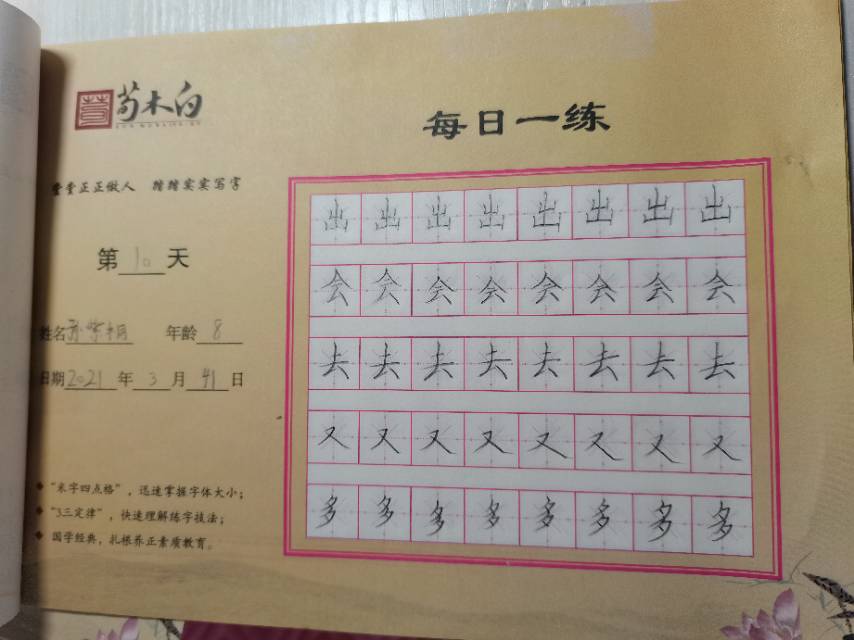 荀木白
每日一练
堂堂正正做人 踏踏实实写字
第10天
姓名孙紫 年龄8
日期2021年3月41日
“米字四点格”,迅速掌握字体大小;
“3三定律”,快速理解练字技法;
国学经典,扎根养正素质教育。
出出出出出出出出
会会会会会会会会
去去去去去去去去
又又又又又又又又
多多多多多多多多